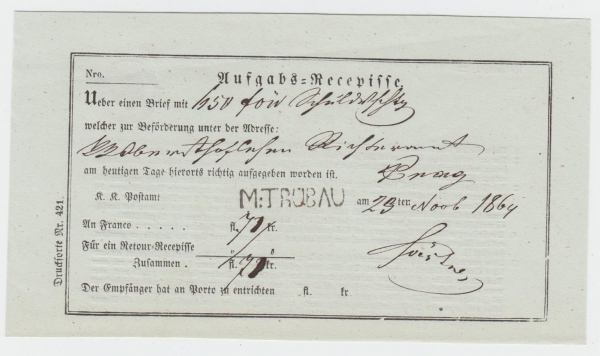 Nro.
Aufgabs-Recepisse.
Ueber einen Brief mit 450
welcher zur Beförderung unter der Adresse:
am heutigen Tage hierorts richtig aufgegeben worden ist. Prag
K. K. Postamt M:TRÜBAU am 23ten Novb 1864
An Franco . . . . . fl. 71 kr.
Für ein Retour-Recepisse
Zusammen . fl. 71 kr.
Der Empfänger hat an Porto zu entrichten fl. kr.
Drucksorte Nr. 421.